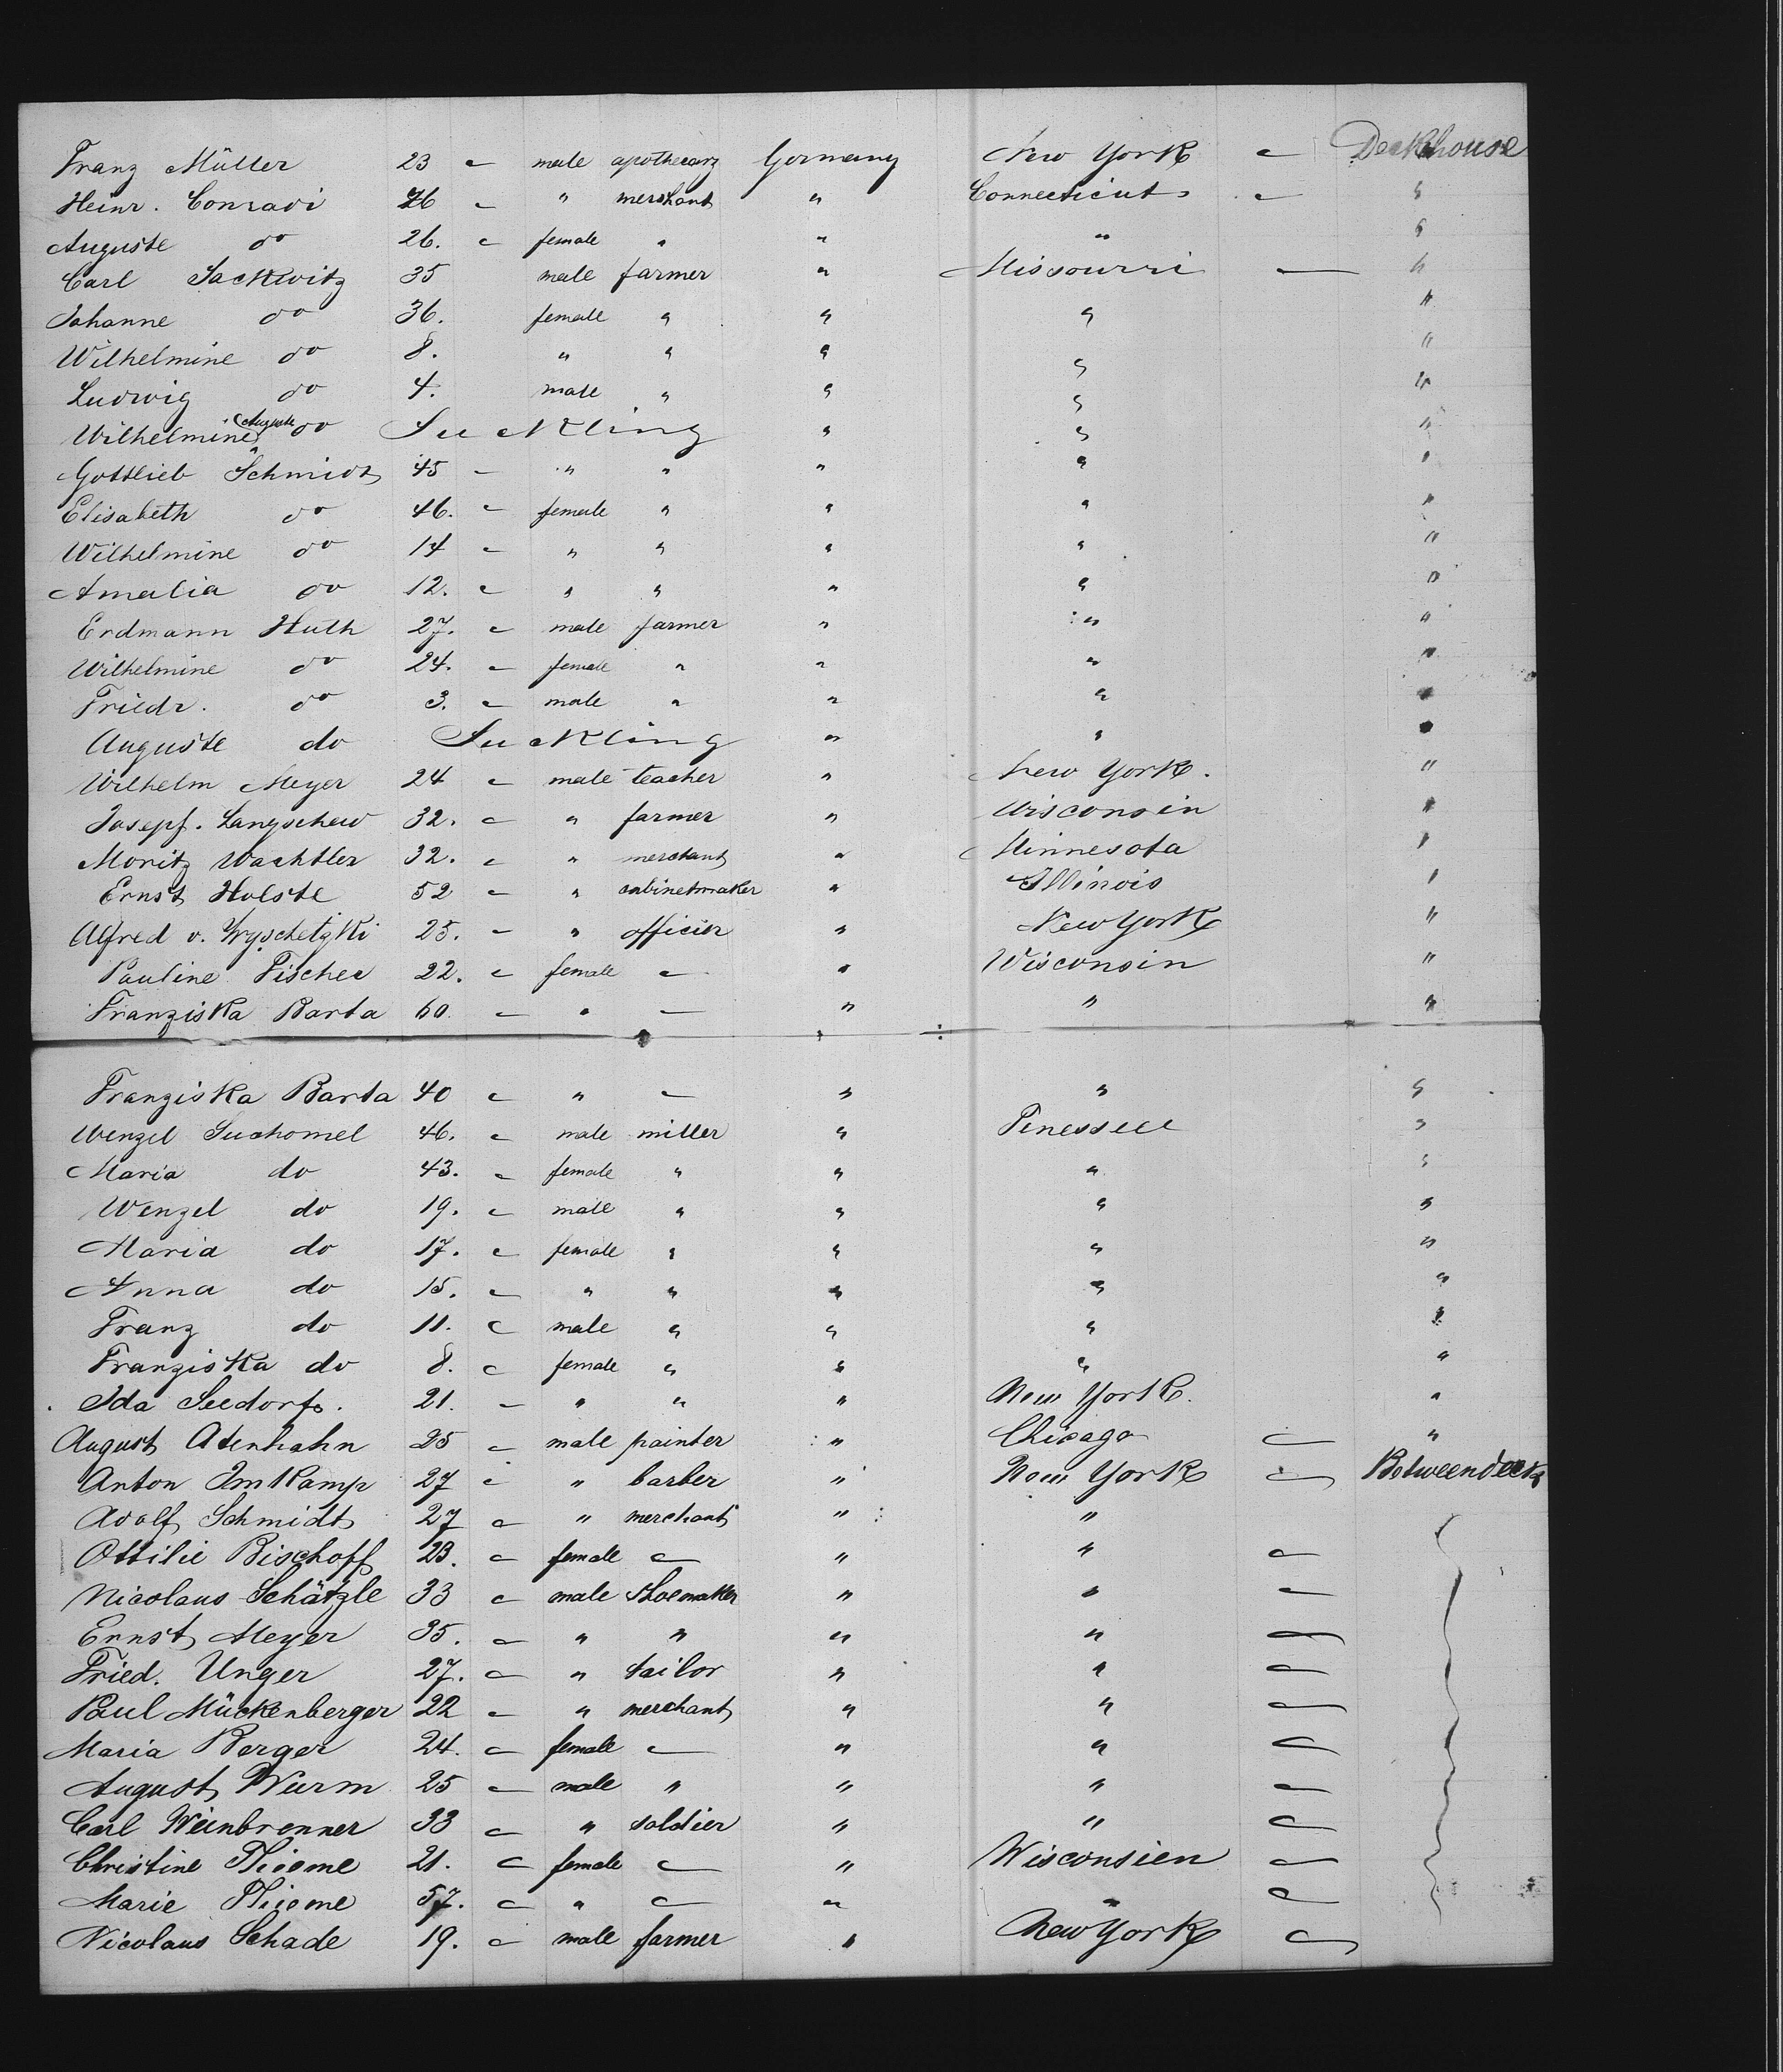 Franz Müller 23 - male apothecary Germany New York - Deckhouse
Heinr. Conradi 26 - " merchant " Connecticut - "
Auguste do 26. - female " " " "
Carl Sackwitz 35 male farmer " Missourri - "
Johanne do 36. female " " " "
Wilhelmine do 8. " " " " "
Ludwig do 4. male " " " "
Wilhelmine (Auguste) do Suckling " " "
Gottlieb Schmidt 45 - " " " " "
Elisabeth do 46. - female " " " "
Wilhelmine do 14 - " " " " "
Amalia do 12. - " " " " "
Erdmann Huth 27. - male farmer " " "
Wilhelmine do 24. - female " " " "
Friedr. do 3. - male " " " "
Auguste do Suckling " " "
Wilhelm Meyer 24 - male teacher " New York. "
Josepf. Langschew 32. - " farmer " Wisconsin "
Moritz Wachtler 32. - " merchant " Minnesota "
Ernst Holste 52 - " cabinetmaker " Illinois "
Alfred v. 25. - " officier " New York "
Pauline Fischer 22. - female - " Wisconsin "
Franziska Barta 60. - " - " " "
Franziska Barta 40 - " - " " "
Wenzel Suchomel 46. - male miller " Tenessee "
Maria do 43. - female " " " "
Wenzel do 19. - male " " " "
Maria do 17. - female " " " "
Anna do 15. - " " " " "
Franz do 11. - male " " " "
Franziska do 8. - female " " " "
Ida Seedorf. 21. - " " " New York. "
August Atenhahn 25 - male painter " Chicago - "
Anton Imkamp 27 - " barber " New York - Betweendeck
Adolf Schmidt 27 - " merchant " "
Ottilie Bischoff 23. - female - " " -
Nicolaus Schätzle 33 - male Shoemaker " " -
Ernst Meyer 35. - " " " " -
Fried. Unger 27. - " tailor " " -
Paul Mückenberger 22 - " merchant " " -
Maria Berger 24. - female - " " -
August Wurm 25 - male " " " -
Carl Weinbrenner 33 - " soldier " " -
Christine Thieme 21. - female - " Wisconsien -
Marie Thieme 57. - " - " " -
Nicolaus Schade 19. - male farmer " New York -